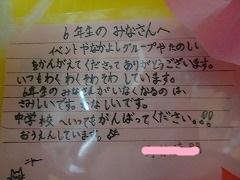 6年生の みなさんへ
イベントやなかよしグループや たのしい
をかんがえてくださって ありがとうございます。
いつも わくわくそわそわ しています。
6年生の みなさんが いなくなるのは
さみしいです。かなしいです。
中学校へいっても がんばってください。!!
おうえんしています。